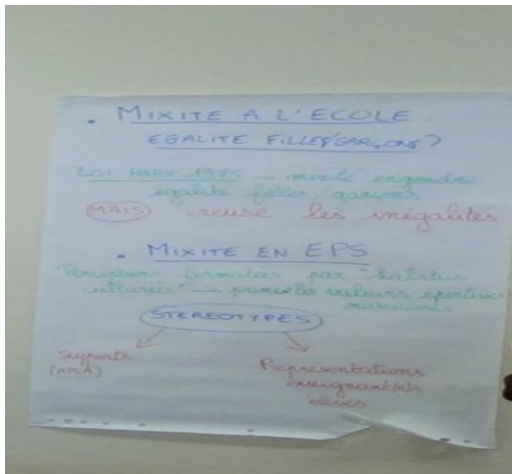 . MIXITE A L'ECOLE :
EGALITE FILLES/GARÇONS?
LOI HABY 1975 → mixité engendre
égalité filles/garçons
MAIS creuse les inégalités
. MIXITE EN EPS
Perceptions formatées par "habitus
culturels" → valeurs sportives
masculines
STEREOTYPES
(APSA)
Représentations
enseignant(e)s
élèves